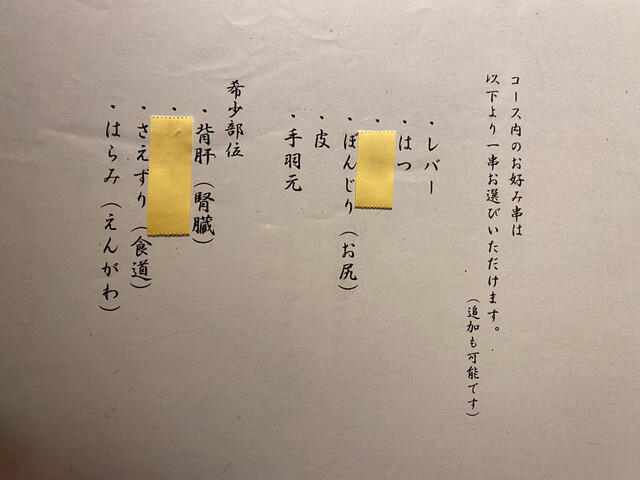 コース内のお好み串は
以下より一串お選びいただけます。
（追加も可能です）
・レバー
・はつ
・
・ぼんじり（お尻）
・皮
・手羽元
希少部位
・背肝（腎臓）
・
・さえずり（食道）
・はらみ（えんがわ）